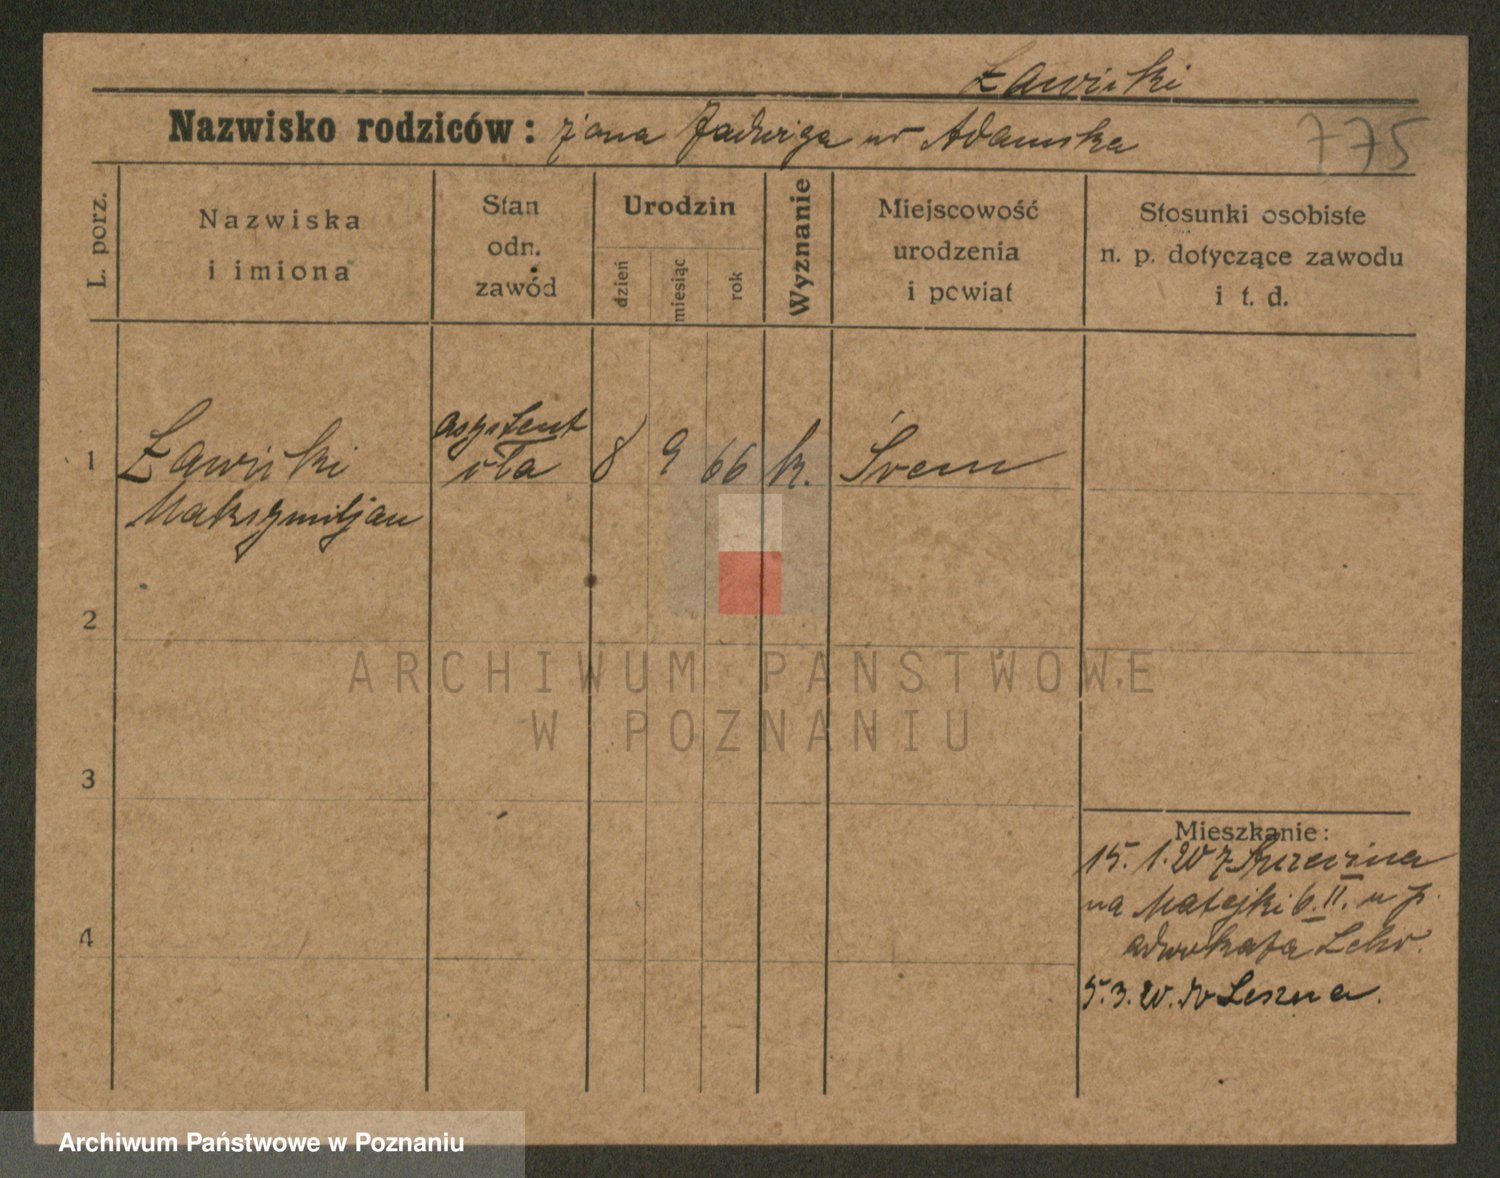 Ławicki
Nazwisko rodziców: żona Jadwiga ur Adamska
775
L. porz.
Nazwiska
i imiona
Stan
odn.
zawód
Urodzin
dzień
miesiąc
rok
Wyznanie
Miejscowość
urodzenia
i powiat
Stosunki osobiste
n. p. dotyczące zawodu
i t. d.
1
Ławicki
Maksymiljan
asystent
cła
8 9 66 k. Śrem
2
ARCHIWUM PAŃSTWOWE
W POZNANIU
3
4
Mieszkanie:
15. 1. 20 z
na Matejki 6. II. u p.
adwokata
5. 3. 20. do Leszna.
Archiwum Państwowe w Poznaniu